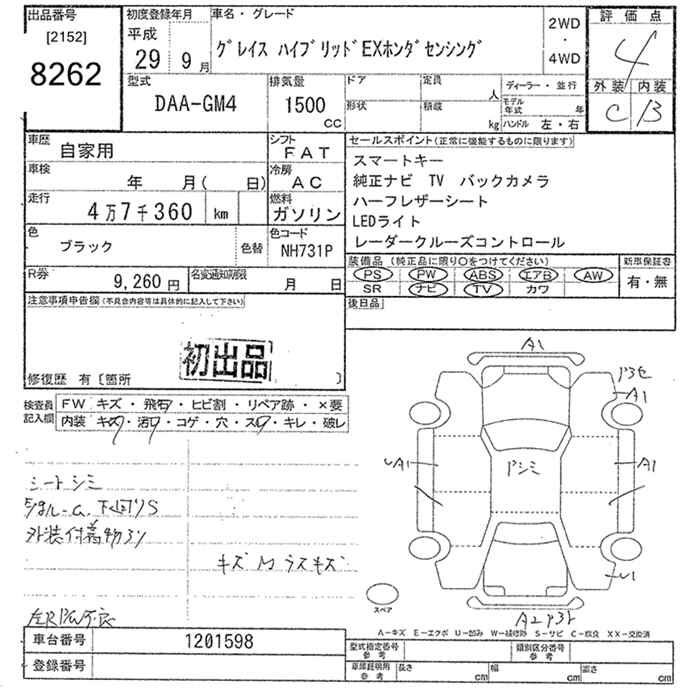 出品番号
[2152]
8262
初度登録年月
平成
29年 9月
車名・グレード
グレイス ハイブリッドEXホンダセンシング
2WD
・
4WD
評価点
4
外装 内装
C B
型式
DAA-GM4
排気量
1500
CC
ドア
形状
定員
人
積載
kg
ディーラー・並行
モデル年式 年
ハンドル 左・右
車歴
自家用
シフト
FAT
車検
年 月( 日)
冷房
AC
走行
4万7千360 km
燃料
ガソリン
色
ブラック
色替
色コード
NH731P
R券
9,260円
名変通知期限
月 日
セールスポイント(正常に機能するものに限ります)
スマートキー
純正ナビ TV バックカメラ
ハーフレザーシート
LEDライト
レーダークルーズコントロール
装備品 (純正品に限り○をつけてください)
PS PW ABS エアB AW
SR ナビ TV カワ
新車保証書
有・無
後日品
注意事項申告欄(不具合内容等は具体的に記入して下さい)
初出品
修復歴 有〔箇所 〕
検査員記入欄
FW キズ・飛石・ヒビ割・リペア跡・×要
内装 キズ・汚れ・コゲ・穴・スレ・キレ・破レ
シートシミ
下回りS
外装付着物
キズ
A1
A1
A1
A1
U1
A2
スペア
A-キズ E-エクボ U-凹み W-補修跡 S-サビ C-腐食 XX-交換済
車台番号
1201598
登録番号
型式指定番号 参考
類別区分番号 参考
車庫証明用 参考
長さ cm
幅 cm
高さ cm